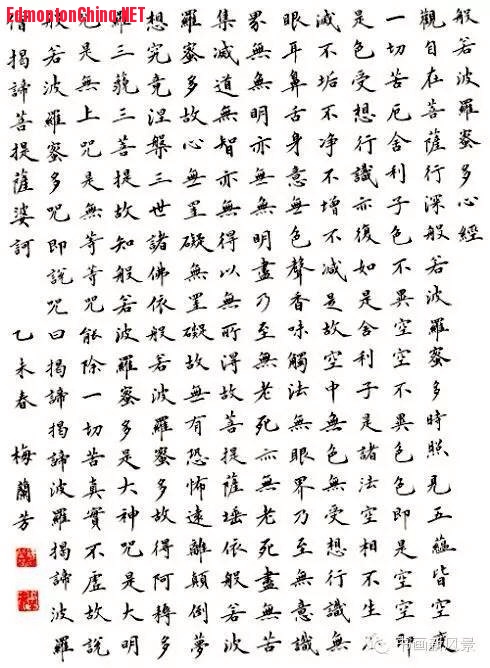 EdmontonChina.NET
般若波羅蜜多心經
觀自在菩薩行深般若波羅蜜多時照見五蘊皆空度
一切苦厄舍利子色不異空空不異色色即是空空即
是色受想行識亦復如是舍利子是諸法空相不生不
滅不垢不淨不增不減是故空中無色無受想行識無
眼耳鼻舌身意無色聲香味觸法無眼界乃至無意識
界無無明亦無無明盡乃至無老死亦無老死盡無苦
集滅道無智亦無得以無所得故菩提薩埵依般若波
羅蜜多故心無罣礙無罣礙故無有恐怖遠離顛倒夢
想究竟涅槃三世諸佛依般若波羅蜜多故得阿耨多
羅三藐三菩提故知般若波羅蜜多是大神咒是大明
咒是無上咒是無等等咒能除一切苦真實不虛故說
般若波羅蜜多咒即說咒曰揭諦揭諦波羅揭諦波羅
僧揭諦菩提薩婆訶 乙未春 梅蘭芳
书画新风景